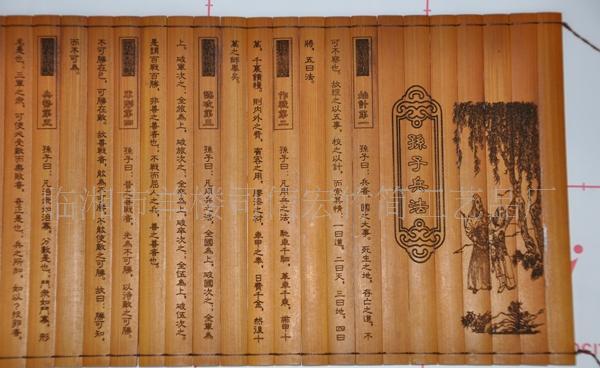 孫子兵法
始計第一 孫子曰：兵者，國之大事，死生之地，存亡之道，不
可不察也。故經之以五事，校之以計，而索其情，一曰道，二曰天，三曰地，四曰
將，五曰法。
作戰第二 孫子曰：凡用兵之法，馳車千駟，革車千乘，帶甲十
萬，千里饋糧，則內外之費，賓客之用，膠漆之材，車甲之奉，日費千金，然後十
萬之師舉矣。
謀攻第三 孫子曰：凡用兵之法，全國為上，破國次之；全軍為
上，破軍次之；全旅為上，破旅次之；全卒為上，破卒次之；全伍為上，破伍次之。
是謂百戰百勝，非善之善者也；不戰而屈人之兵，善之善者也。
軍形第四 孫子曰：昔之善戰者，先為不可勝，以待敵之可勝。
不可勝在己，可勝在敵。故善戰者，能為不可勝，不能使敵之可勝。故曰：勝可知，
而不可為。
兵勢第五 孫子曰：凡治眾如治寡，分數是也；鬥眾如鬥寡，形
名是也；三軍之眾，可使必受敵而無敗者，奇正是也；兵之所加，如以碬投卵者，
临湘市羊楼司宏竹简工艺品厂